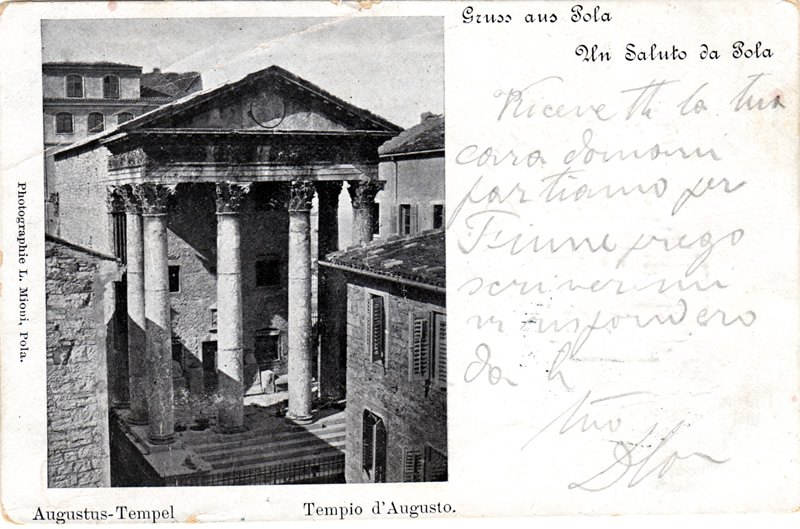 Gruss aus Pola
Un Saluto da Pola
Ricevetti la tua
cara domani
partiamo per
Fiume prego
scrivermi
risponderò
da lì
tuo
Photographie L. Mioni, Pola.
Augustus-Tempel
Tempio d'Augusto.